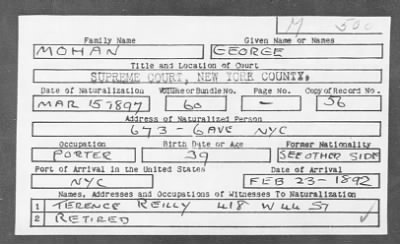 M 500
Family Name Given Name or Names
MOHAN GEORGE
Title and Location of Court
SUPREME COURT, NEW YORK COUNTY,
Date of Naturalization Volume or Bundle No. Page No. Copy of Record No.
MAR 15 1897 60 - 56
Address of Naturalized Person
673 - 6 AVE NYC
Occupation Birth Date or Age Former Nationality
PORTER 39 SEE OTHER SIDE
Port of Arrival in the United States Date of Arrival
NYC FEB 23 - 1892
Names, Addresses and Occupations of Witnesses To Naturalization
1 TERENCE REILLY 418 W 44 ST
2 RETIRED